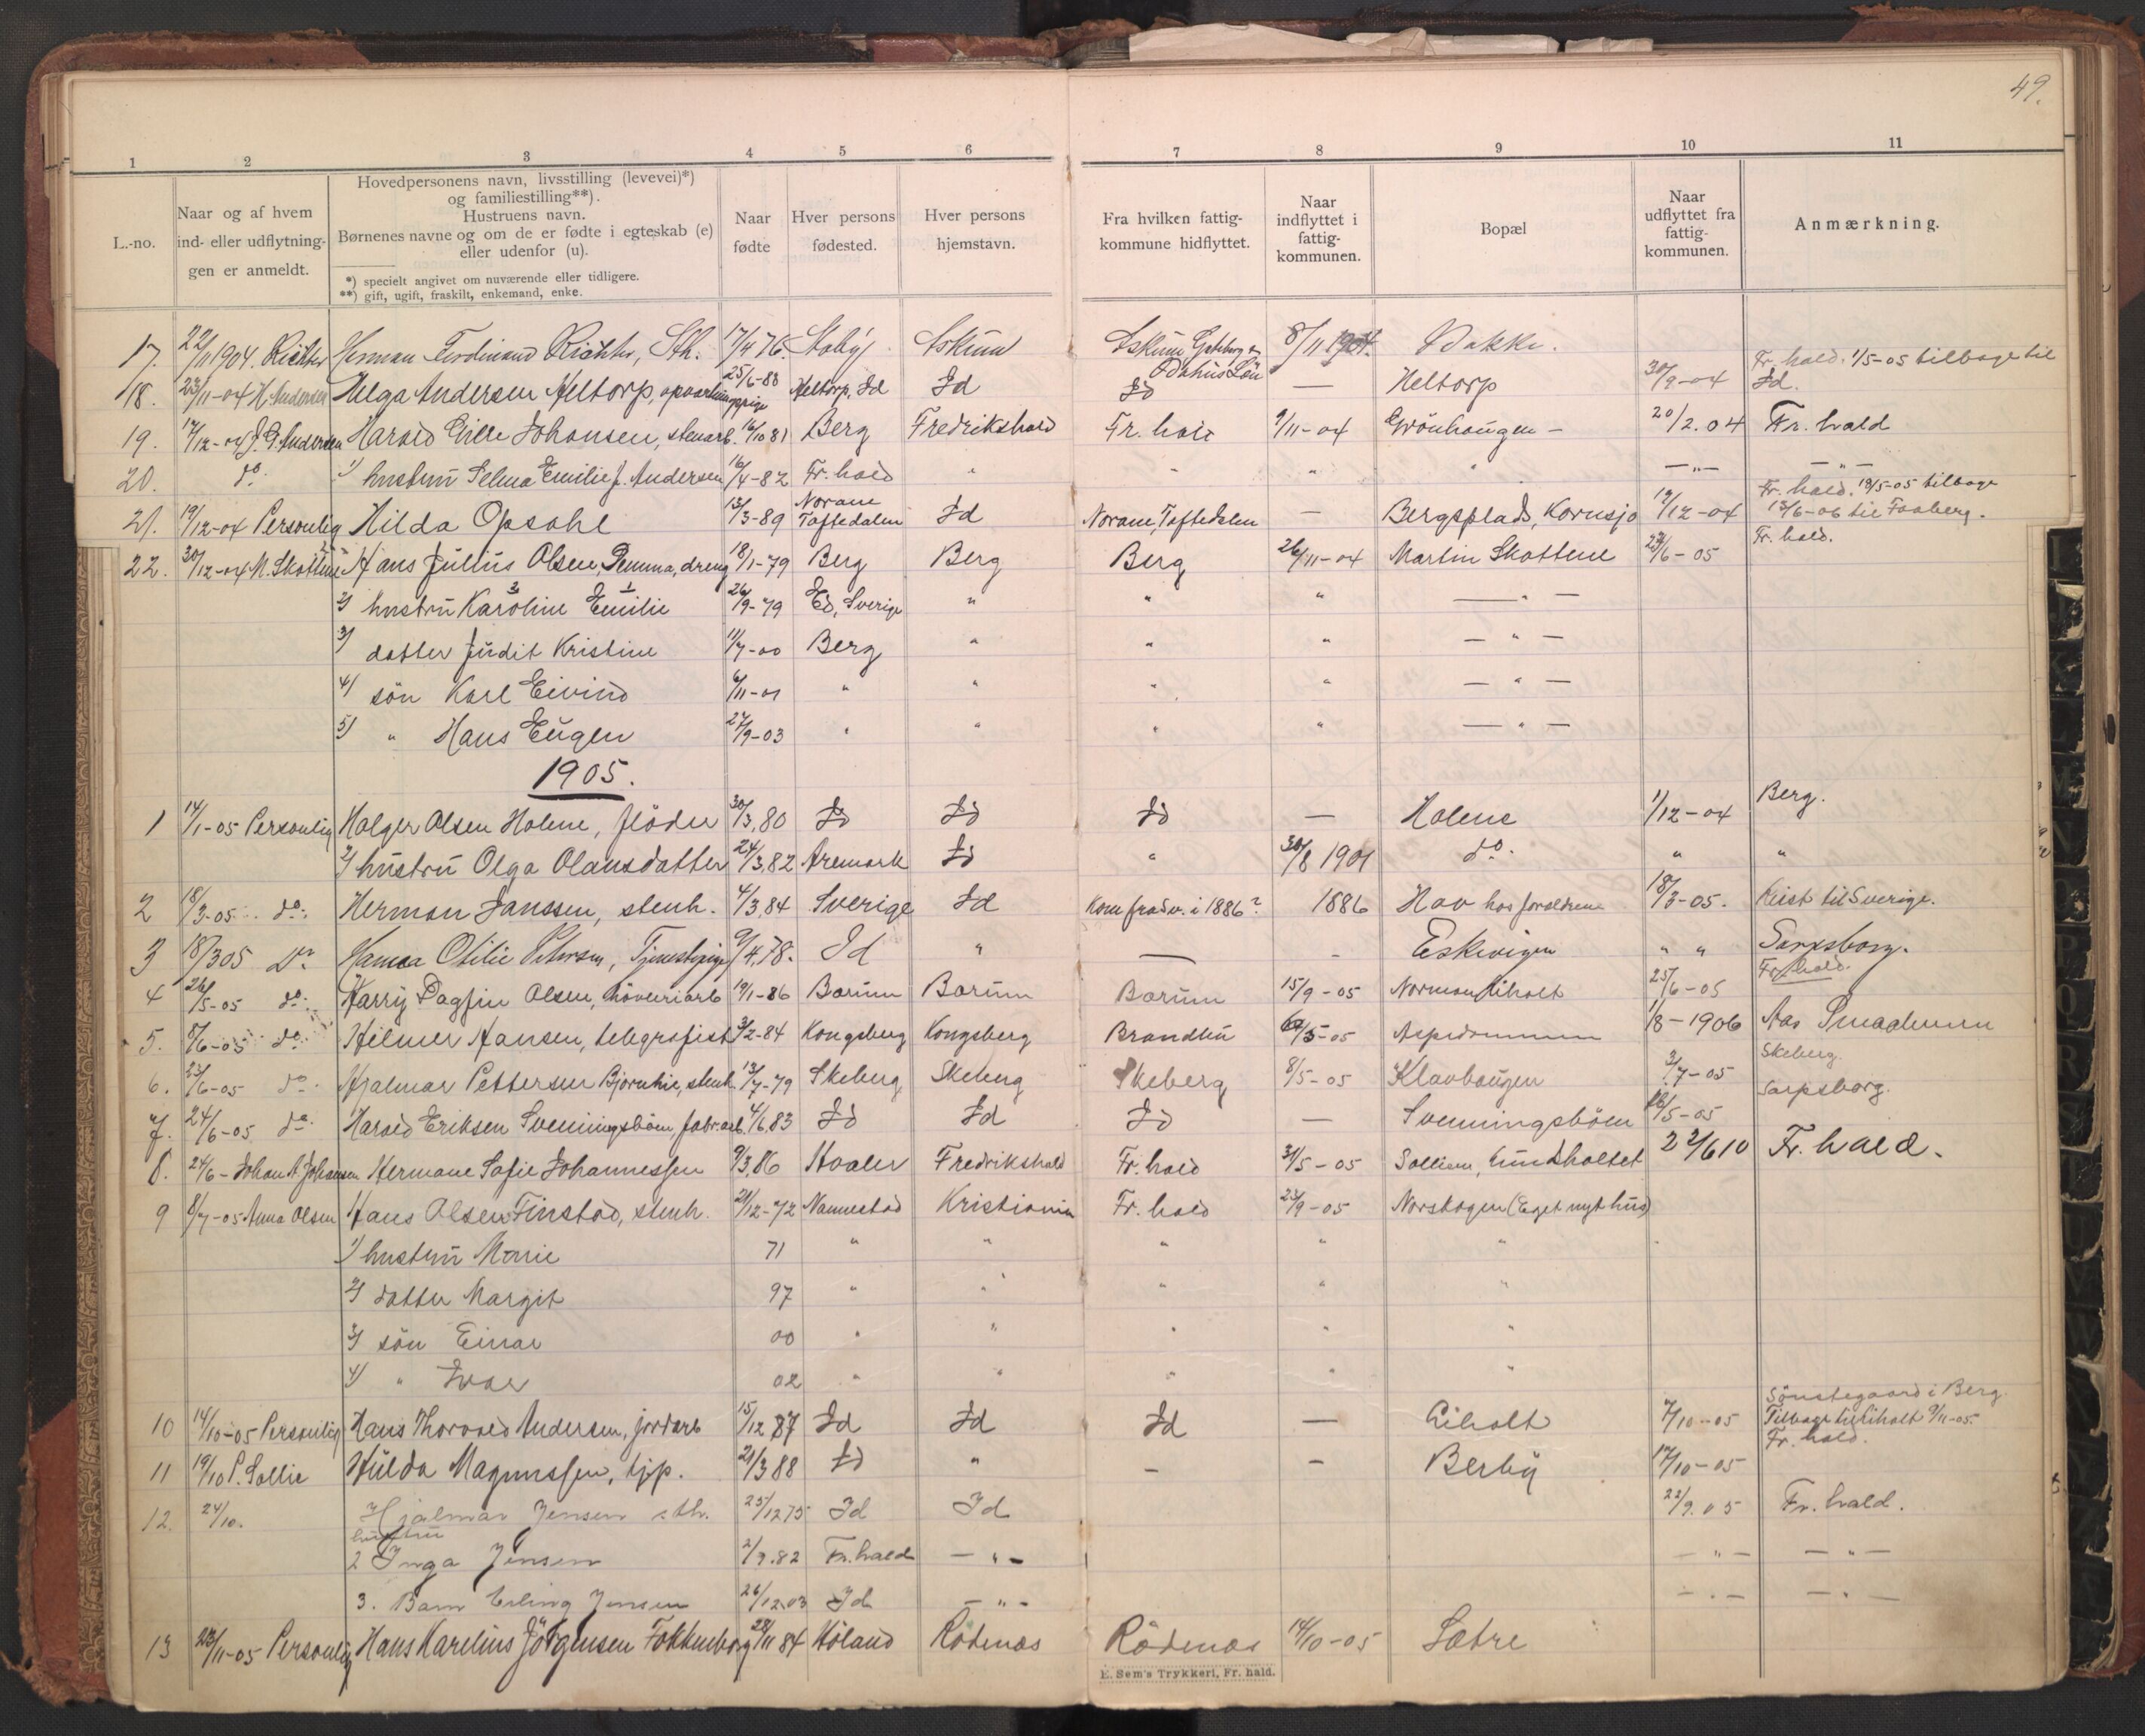 49.
1 2 3 4 5 6 7 8 9 10 11
L.-no.
Naar og af hvem
ind- eller udflytnin-
gen er anmeldt.
Hovedpersonens navn, livsstilling (levevei)*)
og familiestilling**).
Hustruens navn.
Børnenes navne og om de er fødte i egteskab (e)
eller udenfor (u).
*) specielt angivet om nuværende eller tidligere.
**) gift, ugift, fraskilt, enkemand, enke.
Naar
fødte
Hver persons
fødested.
Hver persons
hjemstavn.
Fra hvilken fattig-
kommune hidflyttet.
Naar
indflyttet i
fattig-
kommunen.
Bopæl
Naar
udflyttet fra
fattig-
kommunen.
Anmærkning.
17. 22/11 1904. Richter Herman Ferdinand Richter, Sth. 17/4 76 8/11 1904. Bakke.
Fr. hald. 1/5-05 tilbage til
18. 23/11-04 H. Andersen Helga Andersen Heltorp, opvartningspige 25/6-88 Heltorp, Id Id Id — Heltorp 30/9-04 Id.
19. 17/12-04 J. G. Andersen Harald Gille Johansen, stenarb. 16/10 81 Berg Fredrikshald Fr. hald 9/11-04 Grönhaugen – 20/2.04 Fr. hald
20. do. 1) hustru Selma Emilie J. Andersen 16/4-82 Fr. hald " " " " —"— —"—
Fr. hald. 18/5-05 tilbage
21. 19/12-04 Personlig Hilda Opsahl 13/3-89 Norane Toftedalen Id Norane, Toftedalen — Bergsplads, Kornsjø 12/12-04 13/6-06 til Faaberg.
Fr. hald.
22. 30/12-04 M. Skottene Hans Julius Olsen, Demma, dreng 18/1-79 Berg Berg Berg 26/11-04 Martin Skottene 23/6-05
2) hustru Karoline Emilie 26/9-79 Ed, Sverige " " " —"—
3) datter Judit Kristine 11/7-00 Berg " " " —"—
4) sön Karl Eivind 6/11-01 " " " " —"—
5) " Hans Eugen 27/9-03 " " " " —"—
1905.
Berg.
1 14/1-05 Personlig Holger Olsen Holene, flöder 30/3,80 Id Id Id — Holene 1/12-04
2) hustru Olga Olausdatter 24/3,82 Aremark Id " 30/8 1901 do. " "
2 18/3-05 do. Herman Janssen, stenh. 4/3,84 Sverige Id Kom fra Sv. i 1886? 1886 Hov hos forældrene 18/3-05. Reist til Sverige.
3 18/3 05 Do Hanna Otilie Petersen, Tjenestepige 9/4,78. Id " — - Eskevigen " " Sarpsborg.
Fr. hald.
4 26/5-05 do. Harry Dagfin Olsen, höveriarb 19/1-86 Bærum Bærum Bærum 15/9-05 Norman Liholt 25/6-05
5. 8/6-05 do. Hilmer Hansen, telegrafist 3/2-84 Kongsberg Kongsberg Brandbu /5-05 Aspedammen 1/8-1906 Aas Smaalenene
Skeberg.
6. 23/6-05 do. Hjalmar Pettersen Bjørnlie, stenh 13/7-79 Skeberg Skeberg Skeberg 8/5-05 Klavhaugen 3/7-05
Sarpsborg.
7. 24/6-05 do. Harald Eriksen Svenningsböen, fabr.arb. 4/6,83 Id Id Id — Svenningsböen /5-05
8. 24/6 – Johan A. Johansen Hermane Sofie Johannessen 9/3,86 Haaler Fredrikshald Fr. hald 31/5-05 Sollien, Lundsholtet 22/6 10 Fr. hald.
9 8/7-05 Anna Olsen Hans Olsen Finstad, stenh. 21/12-72 Nannestad Kristiania Fr. hald 23/9-05 Norskogen (Eget nyt hus)
1) hustru Marie 71 " " " " "
2) datter Margit 97 " " " " "
3) sön Einar 00 " " " " "
4) " Ivar 02 " " " " "
Sönstegaard i Berg
10 14/10-05 Personlig Hans Thorvald Andersen, jordarb 15/12 87 Id Id Id — Liholt 7/10-05 Tilbage til Liholt 9/11-05.
Fr. hald.
11 19/10 P. Sollie Hulda Magnussen, tjp. 21/3 88 Id " - - Berby 17/10-05
12. 24/10. Hjalmar Jensen sth. 25/12 75 Id Id 22/9.05 Fr. hald.
hustru
2 Inga Jensen 2/9.82 Fr. hald —"— —"— —"—
3. Barn Erling Jensen 26/12.03 Id —"— —"— —"—
13 23/11-05 Personlig Hans Karelius Jörgensen Fokkenborg 28/11 84 Höland Rödenæs Rödenæs 14/10-05 Sætre
E. Sem's Trykkeri, Fr. hald.